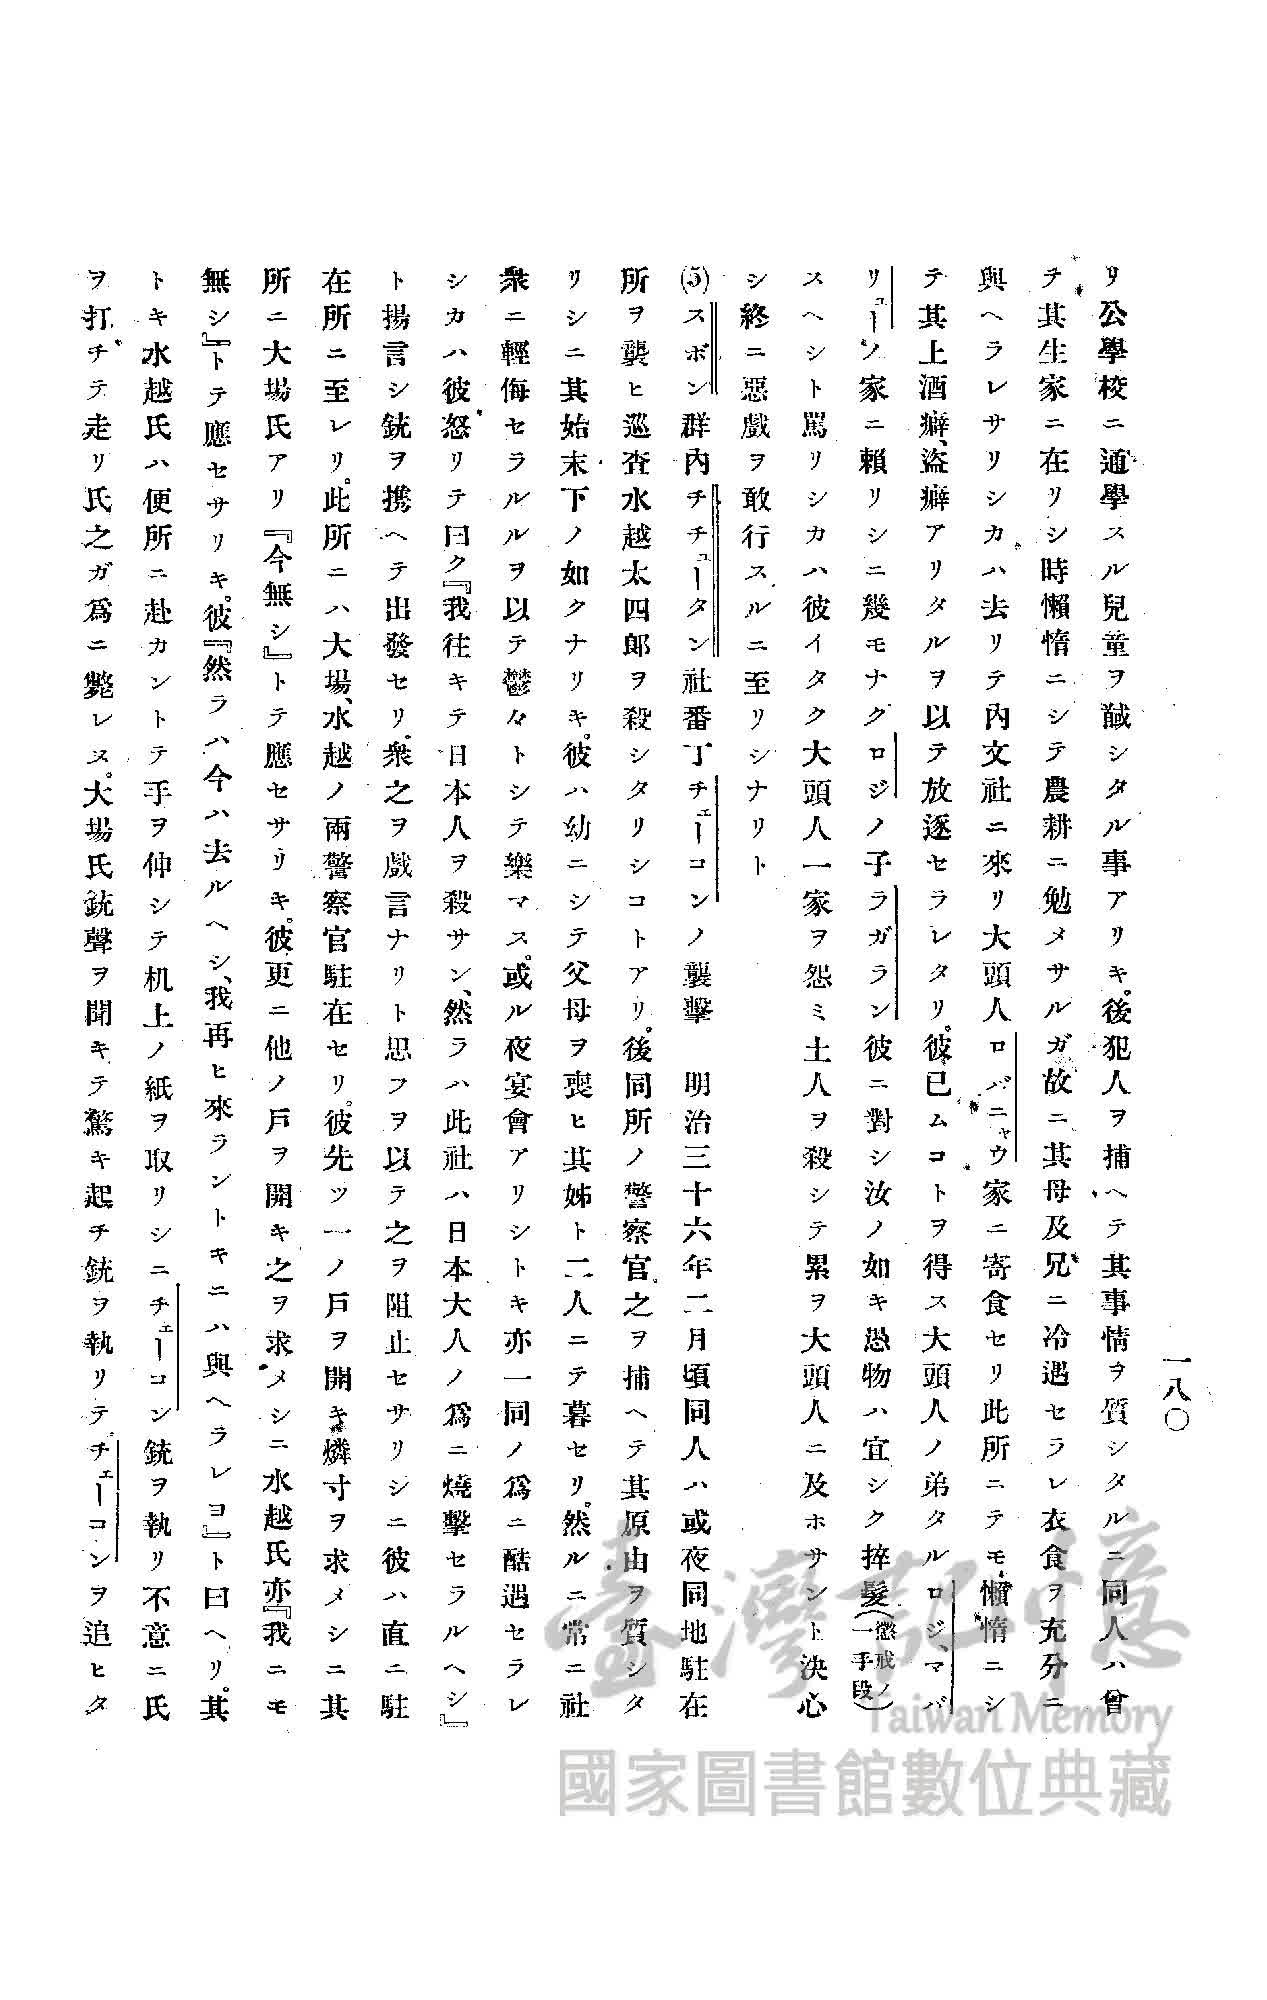 一八〇
リ公學校ニ通學スル兒童ヲ馘シタル事アリキ。後犯人ヲ捕ヘテ其事情ヲ質シタルニ同人ハ曾
テ其生家ニ在リシ時懶惰ニシテ農耕ニ勉メサルガ故ニ其母及兄ニ冷遇セラレ衣食ヲ充分ニ
與ヘラレサリシカハ去リテ內文社ニ來リ大頭人ロバニャウ家ニ寄食セリ此所ニテモ懶惰ニシ
テ其上酒癖、盜癖アリタルヲ以テ放逐セラレタリ。彼已ムコトヲ得ス大頭人ノ弟タルロジ、マバ
リューノ家ニ賴リシニ幾モナクロジノ子ラガラン彼ニ對シ汝ノ如キ愚物ハ宜シク捽髮(懲戒ノ一手段)
スヘシト罵リシカハ彼イタク大頭人一家ヲ怨ミ土人ヲ殺シテ累ヲ大頭人ニ及ホサント決心
シ終ニ惡戲ヲ敢行スルニ至リシナリト
(5)スボン群內チチュータン社番丁チェーコンノ襲擊　明治三十六年二月頃同人ハ或夜同地駐在
所ヲ襲ヒ巡査水越太四郎ヲ殺シタリシコトアリ。後同所ノ警察官之ヲ捕ヘテ其原由ヲ質シタ
リシニ其始末下ノ如クナリキ。彼ハ幼ニシテ父母ヲ喪ヒ其姊ト二人ニテ暮セリ。然ルニ常ニ社
衆ニ輕侮セラルルヲ以テ鬱々トシテ樂マス。或ル夜宴會アリシトキ亦一同ノ爲ニ酷遇セラレ
シカハ彼怒リテ曰ク『我往キテ日本人ヲ殺サン、然ラハ此社ハ日本大人ノ爲ニ燒擊セラルヘシ』
ト揚言シ銃ヲ携ヘテ出發セリ。衆之ヲ戲言ナリト思フヲ以テ之ヲ阻止セサリシニ彼ハ直ニ駐
在所ニ至レリ。此所ニハ大場、水越ノ兩警察官駐在セリ。彼先ツ一ノ戶ヲ開キ燐寸ヲ求メシニ其
所ニ大場氏アリ『今無シ』トテ應セサリキ。彼更ニ他ノ戶ヲ開キ之ヲ求メシニ水越氏亦『我ニモ
無シ』トテ應セサリキ。彼『然ラハ今ハ去ルヘシ、我再ヒ來ラントキニハ與ヘラレヨ』ト曰ヘリ。其
トキ水越氏ハ便所ニ赴カントテ手ヲ伸シテ机上ノ紙ヲ取リシニチェーコン銃ヲ執リ不意ニ氏
ヲ打チテ走リ氏之ガ爲ニ斃レヌ。大場氏銃聲ヲ聞キテ驚キ起チ銃ヲ執リテチェーコンヲ追ヒタ
臺灣記憶
Taiwan Memory
國家圖書館數位典藏